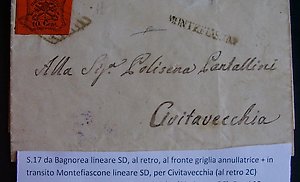 MONTEFIASCONE
Alla Sig.ª Polisena Pantallini
Civitavecchia
S.17 da Bagnorea lineare SD, al retro, al fronte griglia annullatrice + in
transito Montefiascone lineare SD, per Civitavecchia (al retro 2C)